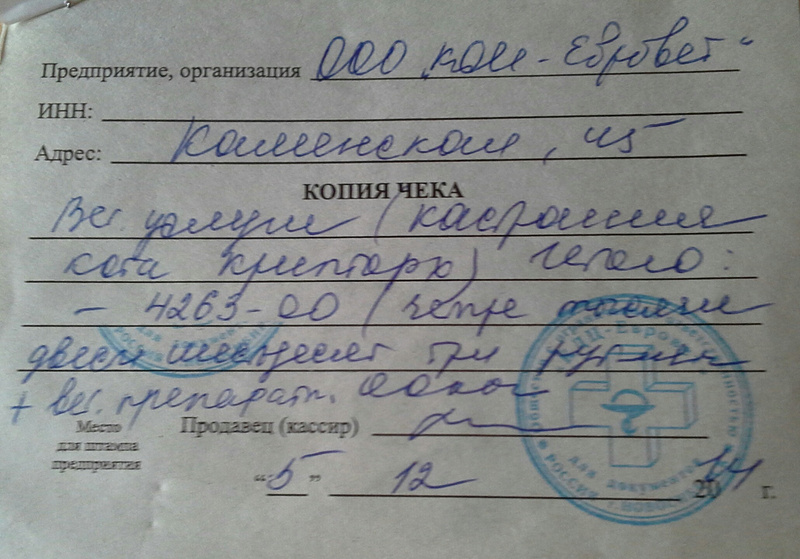 Предприятие, организация ООО „КДЦ - Евровет"
ИНН:
Адрес: Каменская, 45
КОПИЯ ЧЕКА
Вет. услуги (кастрация
кота крипторх) Итого:
- 4263-00 (четыре тысячи
двести шестьдесят три рубля
+ вет. препарат.
Место
для штампа
предприятия
Продавец (кассир)
"5" 12 2014 г.
для документов
РОССИЯ г. НОВОСИБИРСК